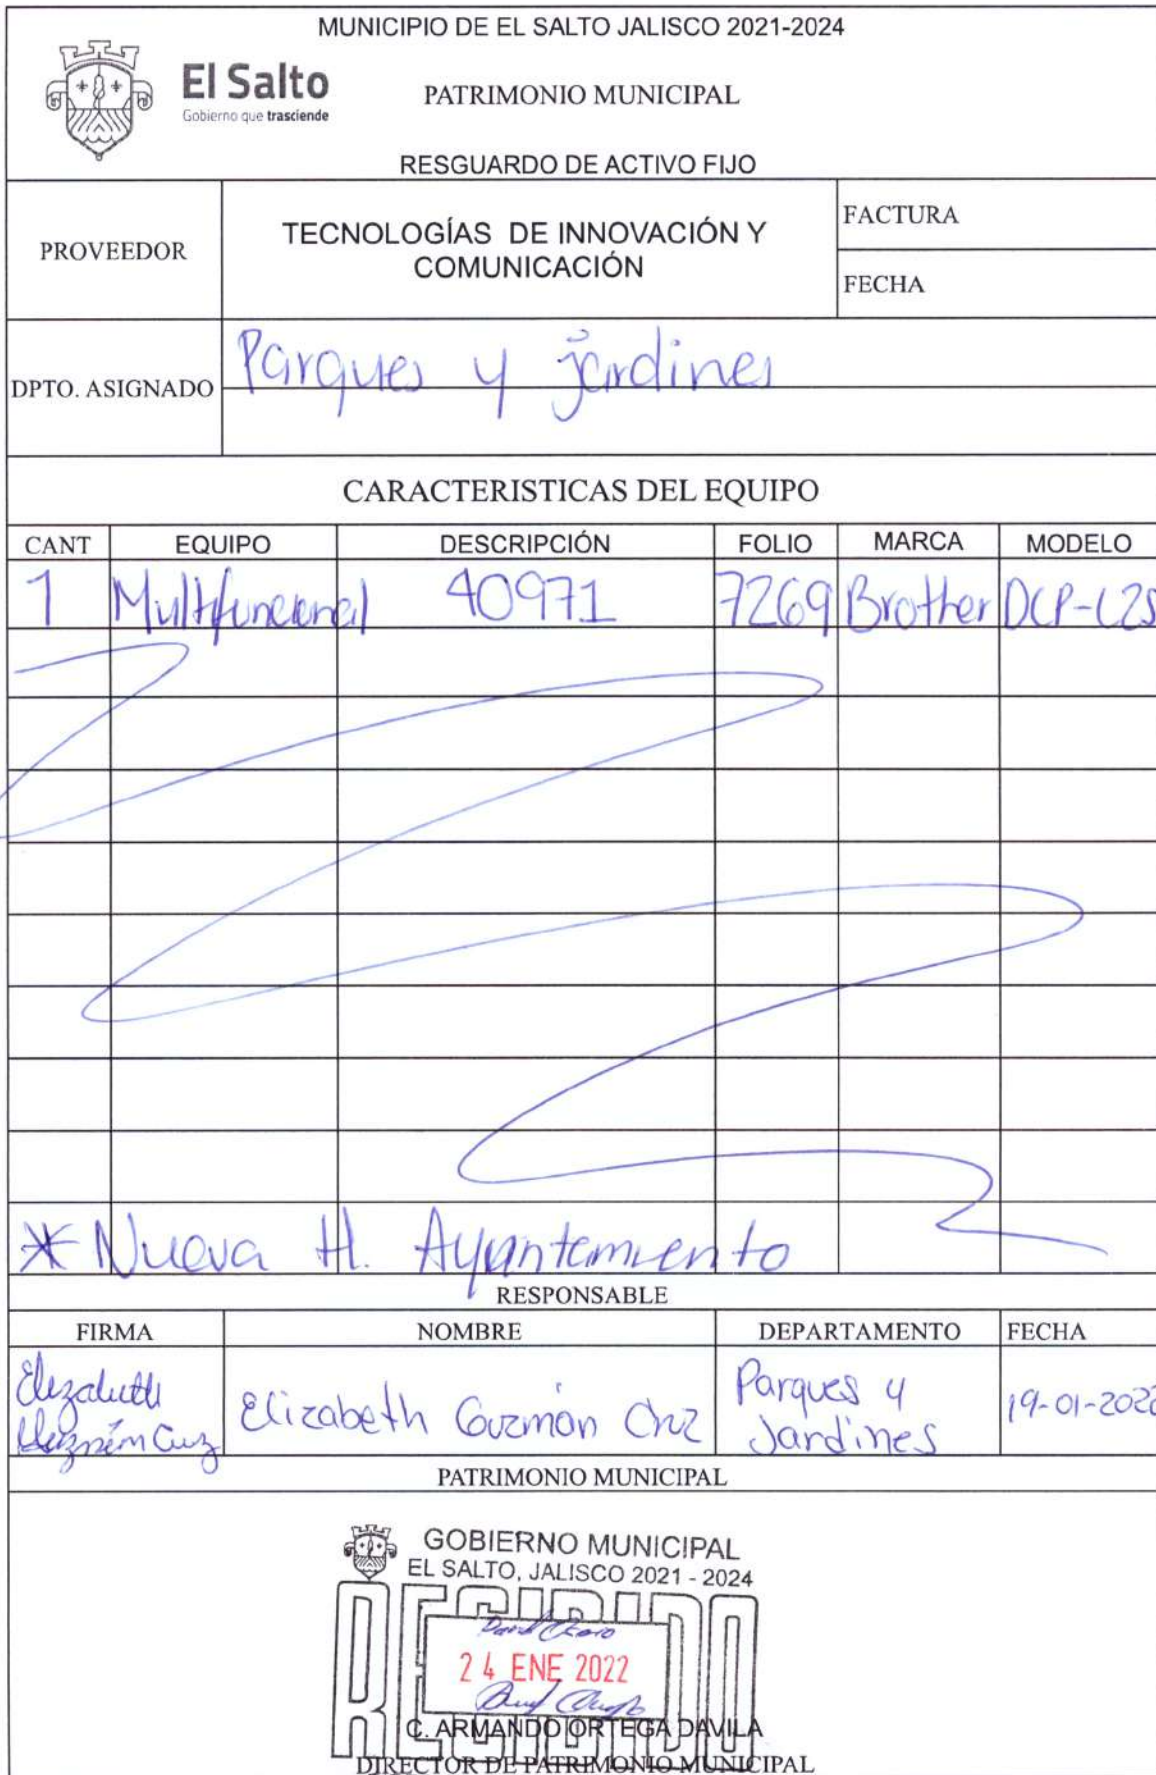 MUNICIPIO DE EL SALTO JALISCO 2021-2024
El Salto
Gobierno que trasciende
PATRIMONIO MUNICIPAL
RESGUARDO DE ACTIVO FIJO
PROVEEDOR
TECNOLOGÍAS DE INNOVACIÓN Y
COMUNICACIÓN
FACTURA
FECHA
DPTO. ASIGNADO
Parques y jardines
CARACTERISTICAS DEL EQUIPO
CANT EQUIPO DESCRIPCIÓN FOLIO MARCA MODELO
1 Multifuncional 40971 7269 Brother DCP-L25
* Nueva H. Ayuntamiento
RESPONSABLE
FIRMA NOMBRE DEPARTAMENTO FECHA
Elizabeth
Guzmán Cruz
Elizabeth Guzmán Cruz
Parques y
Jardines
19-01-2022
PATRIMONIO MUNICIPAL
GOBIERNO MUNICIPAL
EL SALTO, JALISCO 2021 - 2024
RECIBIDO
David
24 ENE 2022
C. ARMANDO ORTEGA DAVILA
DIRECTOR DE PATRIMONIO MUNICIPAL